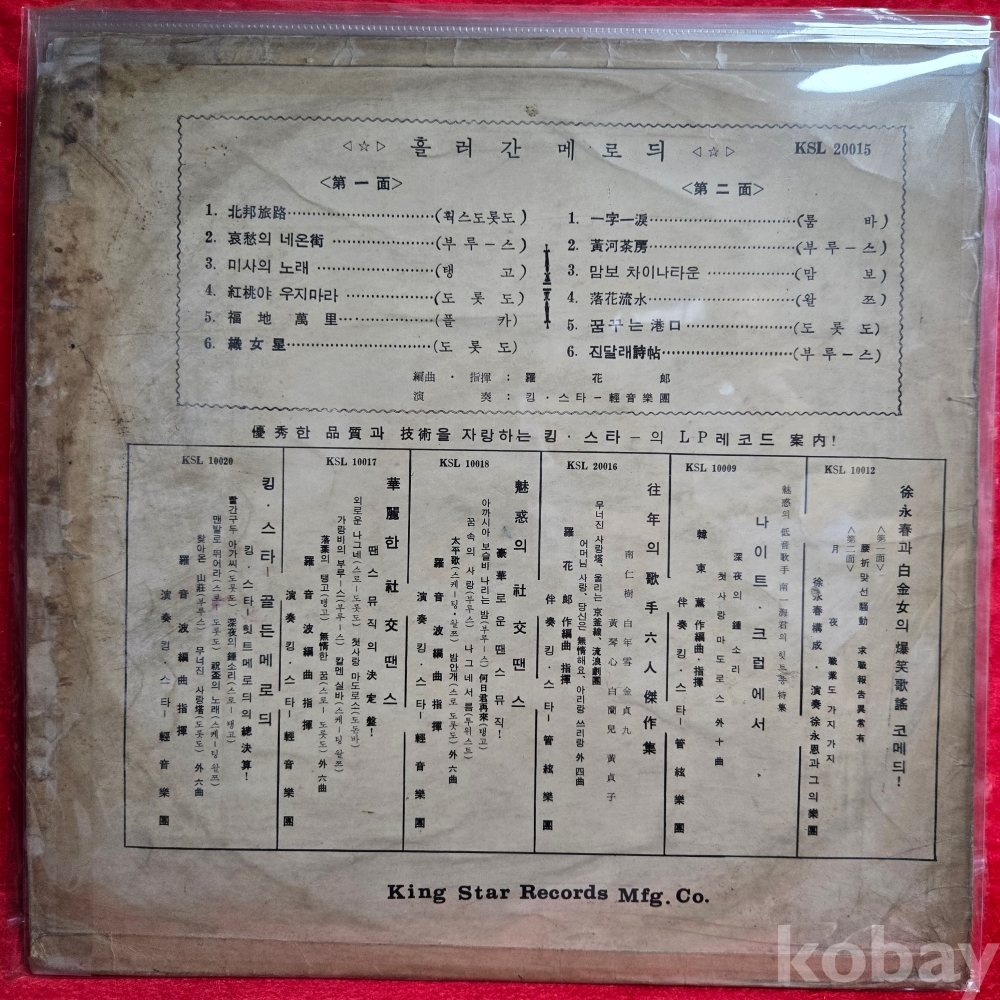 ◁☆▷ 흘러간 메로듸 ◁☆▷ KSL 20015
<第一面>
1. 北邦旅路 (훡스도롯도)
2. 哀愁의 네온街 (부루-스)
3. 미사의 노래 (탱고)
4. 紅桃야 우지마라 (도롯도)
5. 福地萬里 (폴카)
6. 織女星 (도롯도)
<第二面>
1. 一字一淚 (룸바)
2. 黃河茶房 (부루-스)
3. 맘보 차이나타운 (맘보)
4. 落花流水 (왈쯔)
5. 꿈꾸는 港口 (도롯도)
6. 진달래詩帖 (부루-스)
編曲·指揮: 羅花郎
演奏: 킹·스타-輕音樂團
優秀한 品質과 技術을 자랑하는 킹·스타-의 LP레코드 案內!
KSL 10012
徐永春과 白金女의 爆笑歌謠 코메듸!
<第一面>
腰折맞선騷動 求職報告異常有
<第二面>
月夜 職業도 가지가지
徐永春構成·演奏 徐永恩과 그의 樂團
KSL 10009
魅惑의 低音歌手 南一海君의 힛트송特集
나이트·크럽에서
深夜의 鍾소리
첫사랑 마도로스 外十曲
韓東薰 作編曲·指揮
伴奏 킹·스타-管絃樂團
KSL 20016
往年의 歌手六人傑作集
南仁樹 白年雪 金貞九
黃琴心 白蘭兒 黃貞子
무너진 사랑塔, 울리는 京釜線, 流浪劇團
어머님 사랑, 당신은 無情해요, 아리랑 쓰리랑 外四曲
羅花郎 作編曲 指揮
伴奏 킹·스타-管絃樂團
KSL 10018
魅惑의 社交땐스
豪華로운 땐스뮤직!
아까시아 보슬비 나리는 밤(부루-스) 何日君再來(탱고)
꿈속의 사랑(부루-스) 나그네서름(투위스트)
太平歌(스케-팅·왈쯔) 밤안개(스로 도롯도) 外六曲
羅音波 編曲 指揮
演奏 킹·스타-輕音樂團
KSL 10017
華麗한 社交땐스
땐스뮤직의 決定盤!
외로운 나그네(스로-도롯도) 첫사랑 마도로스(도돈바)
가랑비의 부루-스(부루-스) 칼멘 실바(스케-팅왈쯔)
落葉의 탱고(탱고) 無情한 꿈(스로-도롯도) 外六曲
羅音波 編曲 指揮
演奏 킹·스타-輕音樂團
KSL 10020
킹·스타-골든메로듸
킹·스타-힛트메로듸의 總決算!
빨간구두 아가씨(도롯도) 深夜의 鍾소리(스로-탱고)
맨발로 뛰어라(스로-도롯도) 祝盃의 노래(스케-팅 왈쯔)
찾아온 山莊(부루스) 무너진 사랑塔(도롯도) 外六曲
羅音波 編曲 指揮
演奏 킹·스타-輕音樂團
King Star Records Mfg. Co.
kobay